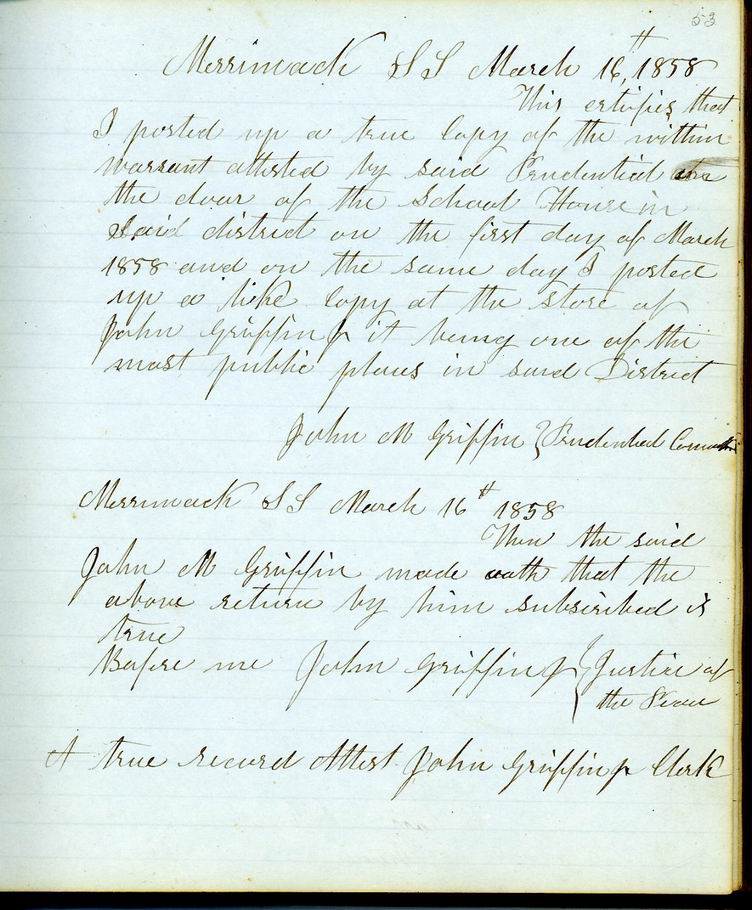 53
Merrimack SS March 16th, 1858
This certifies that
I posted up a true Copy of the within
warrant attested by said Prudential
the door of the School House in
said district on the first day of March
1858 and on the same day I posted
up a like Copy at the store of
John Griffin Jr it being one of the
most public places in said District
John M Griffin } Prudential Committee
Merrimack SS March 16th 1858
Then the said
John M Griffin made oath that the
above return by him subscribed is
true
Before me John Griffin Jr } Justice of
the Peace
A true record Attest John Griffin Jr Clerk